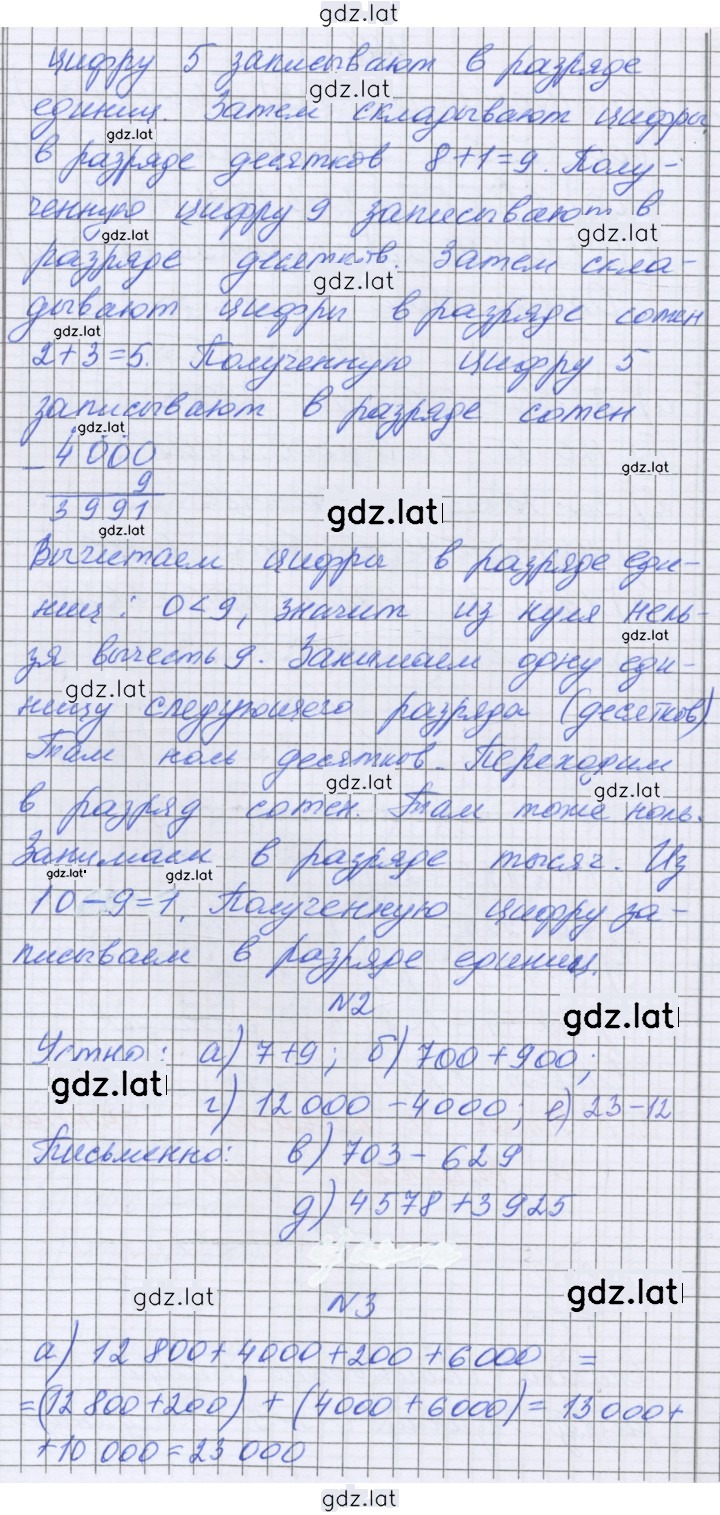 gdz.lat
цифру 5 записывают в разряде
gdz.lat
единиц. Затем складывают цифры
gdz.lat
в разряде десятков 8+1=9. Полу-
ченную цифру 9 записывают в
gdz.lat gdz.lat
разряде десятков. Затем скла-
gdz.lat
дывают цифры в разряде сотен
gdz.lat
2+3=5. Полученную цифру 5
записывают в разряде сотен
gdz.lat
- 4000
gdz.lat
9
3991
gdz.lat
gdz.lat
Вычитаем цифры в разряде еди-
ниц: 0<9, значит из нуля нель-
gdz.lat
зя вычесть 9. Занимаем одну еди-
gdz.lat
ницу следующего разряда (десятков)
Там ноль десятков. Переходим
gdz.lat gdz.lat
в разряд сотен. Там тоже ноль.
Занимаем в разряде тысяч. Из
gdz.lat gdz.lat
10-9=1. Полученную цифру за-
писываем в разряде единиц.
N2
gdz.lat
Устно: а) 7+9; б) 700+900;
gdz.lat
г) 12000-4000; е) 23-12
Письменно: в) 703-629
д) 4578+3925
gdz.lat gdz.lat
N3
а) 12 800+4000+200+6000 =
=(12 800+200)+(4000+6000)=13000+
+10 000=23 000
gdz.lat